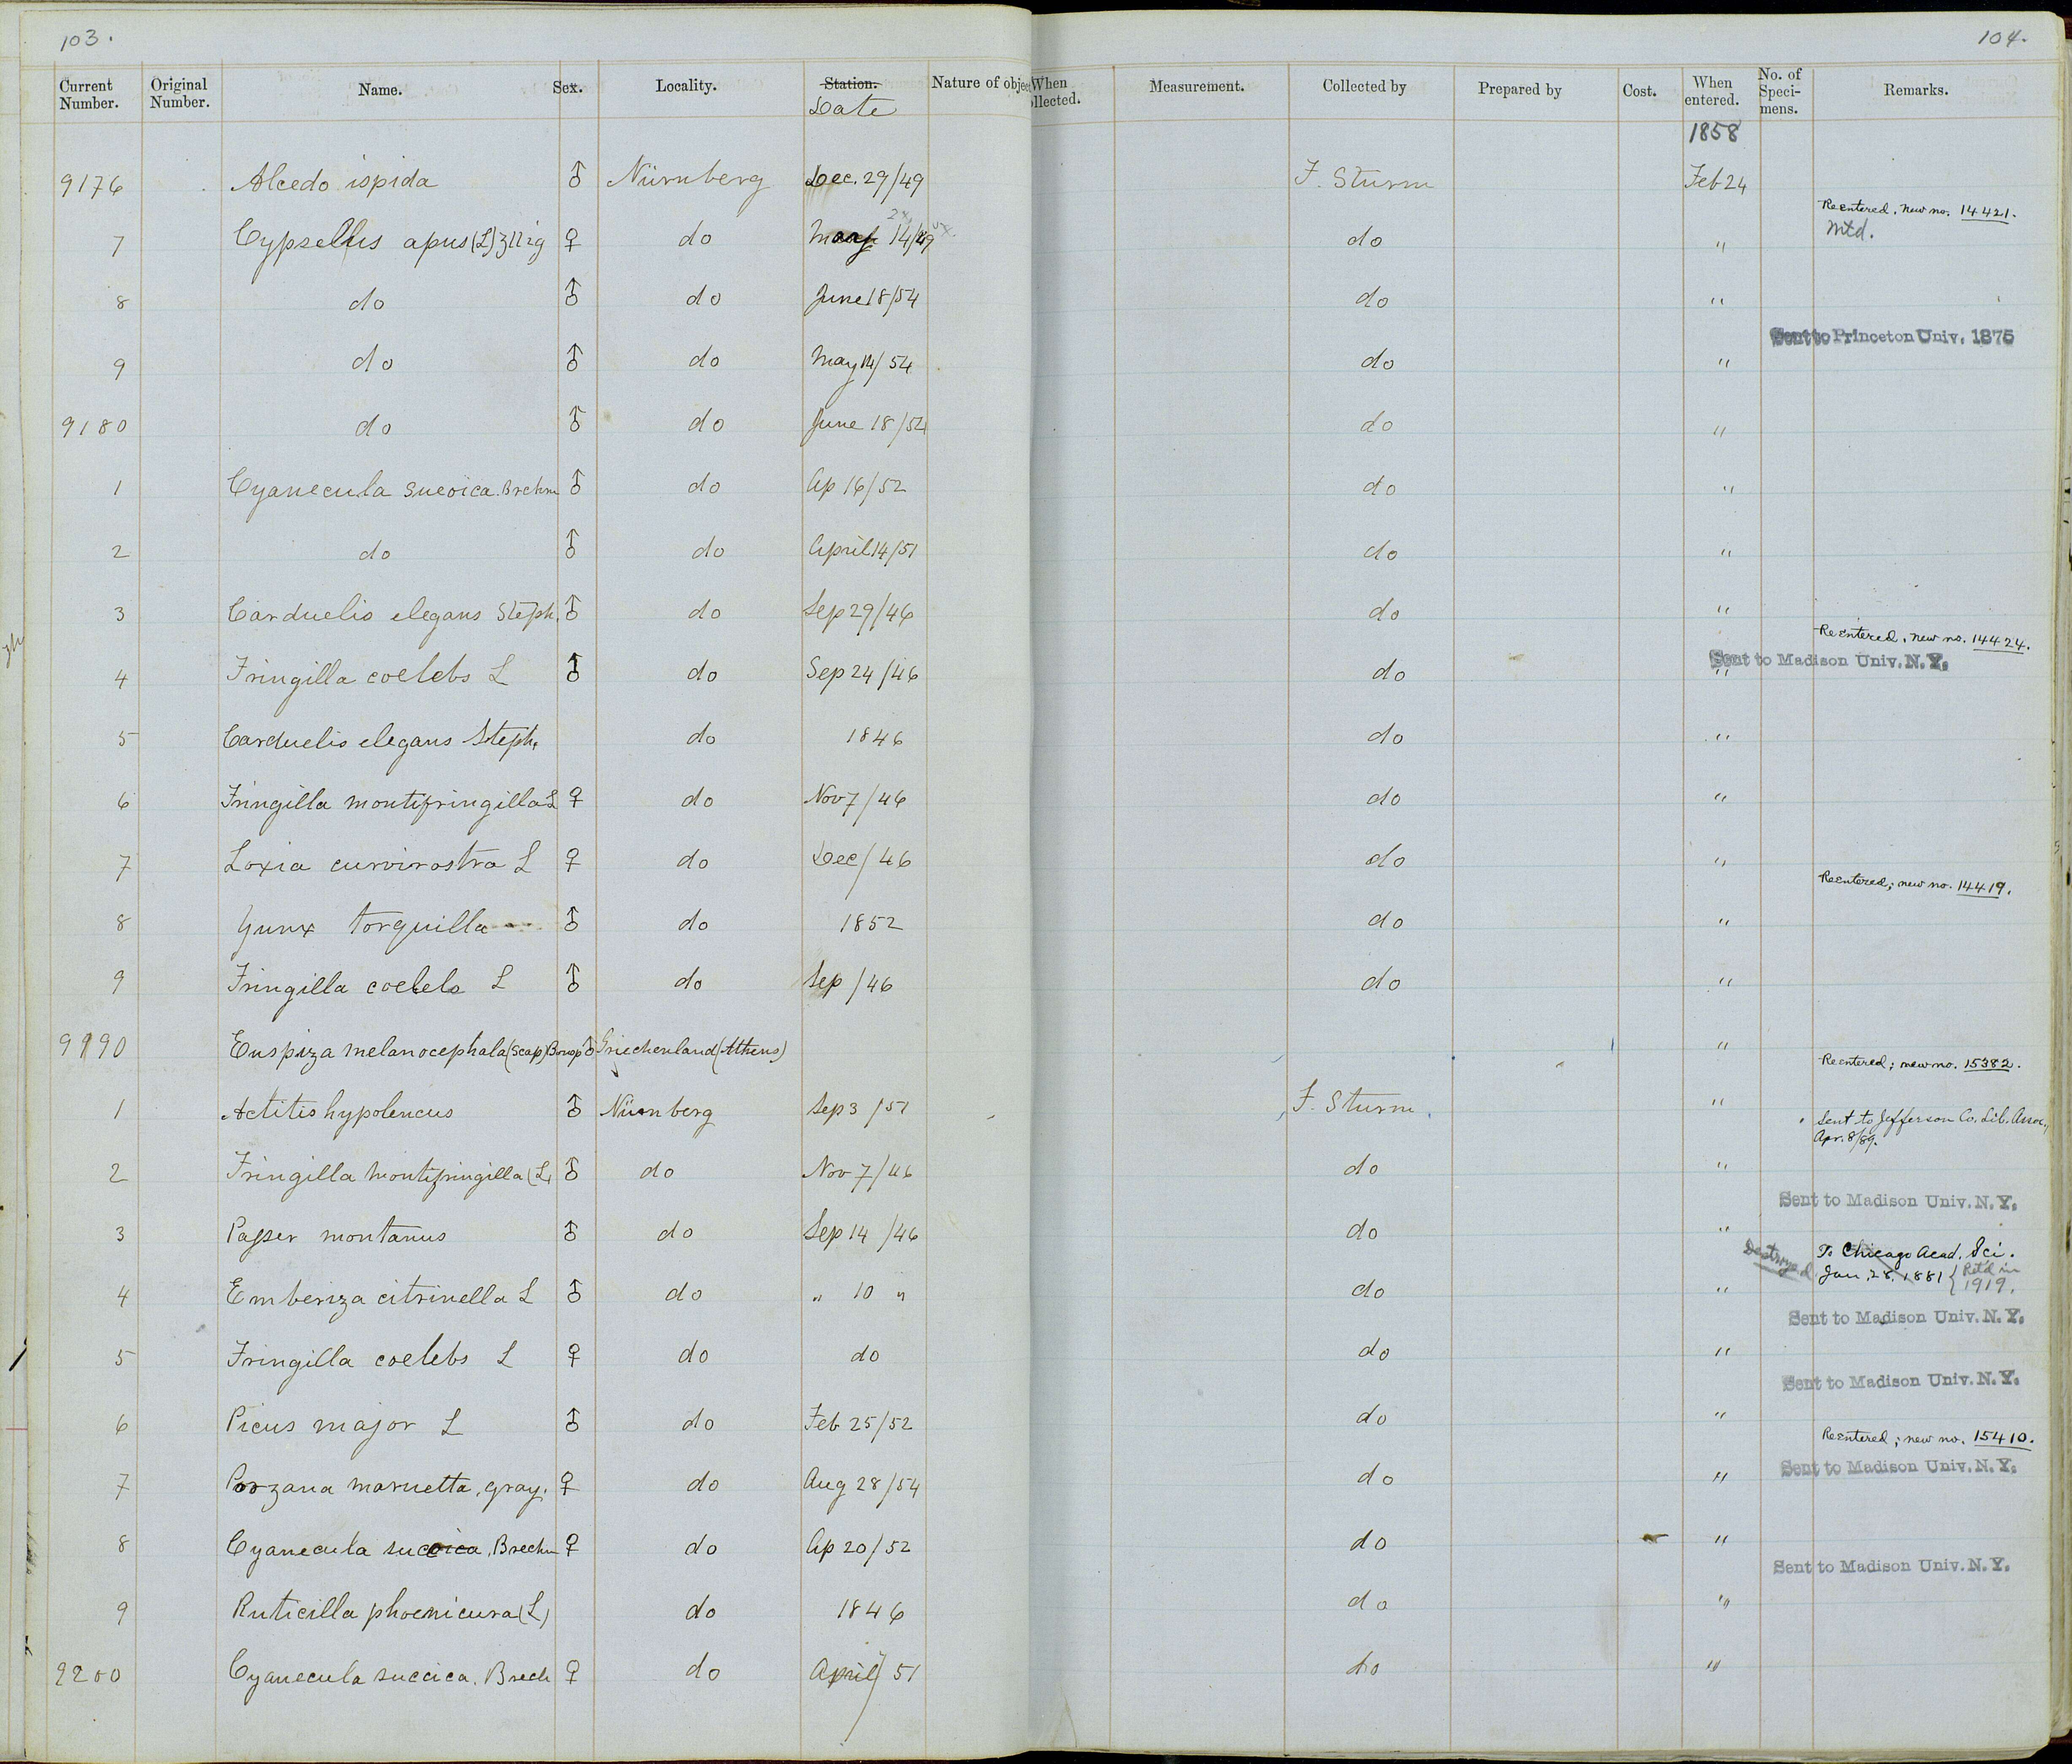 103.
104.
Current Number. Original Number. Name. Sex. Locality. Station. Date Nature of objec When ollected. Measurement. Collected by Prepared by Cost. When entered. No. of Speci-mens. Remarks.
1858
9176 Alcedo ispida ♂ Nürnberg Dec. 29/49 F. Sturm Feb 24
Reentered, new no. 14421.
7 Cypsellus apus (L) Illig ♀ do 14/49 do " Mtd.
8 do ♂ do June 18/54 do "
Sent to Princeton Univ. 1875
9 do ♂ do May 14/54 do "
9180 do ♂ do June 18/54 do "
1 Cyanecula suecica. Brehm ♂ do Ap 16/52 do "
2 do ♂ do April 14/51 do "
3 Carduelis elegans Steph. ♂ do Sep 29/46 do "
Reentered, new no. 14424.
Sent to Madison Univ. N. Y.
4 Fringilla coelebs L ♂ do Sep 24/46 do "
5 Carduelis elegans Steph. do 1846 do "
6 Fringilla montifringilla L ♀ do Nov 7/46 do "
7 Loxia curvirostra L ♀ do Dec/46 do "
Reentered; new no. 14419.
8 Yunx torquilla ♂ do 1852 do "
9 Fringilla coelebs L ♂ do Sep/46 do "
9190 Euspiza melanocephala (Scop) Bonap ♂ Griechenland (Athens) "
Reentered; new no. 15382.
1 Actitis hypoleucus ♂ Nürnberg Sep 3/51 F. Sturm "
Sent to Jefferson Co. Lib. Assoc.,
Apr. 8/89.
2 Fringilla montifringilla (L) ♂ do Nov 7/46 do "
Sent to Madison Univ. N. Y.
3 Passer montanus ♂ do Sep 14/46 do "
Destroyed To Chicago Acad. Sci.
Jan. 28, 1881 { Ret'd in 1919.
4 Emberiza citrinella L ♂ do " 10 " do "
Sent to Madison Univ. N. Y.
5 Fringilla coelebs L ♀ do do do "
Sent to Madison Univ. N. Y.
6 Picus major L ♂ do Feb 25/52 do "
Reentered; new no. 15410.
Sent to Madison Univ. N. Y.
7 Porzana maruetta, gray. ♀ do Aug 28/54 do "
8 Cyanecula suecica, Brechm ♀ do Ap 20/52 do "
Sent to Madison Univ. N. Y.
9 Ruticilla phoenicura (L) do 1846 do "
9200 Cyanecula succica. Brech ♀ do April/51 do "